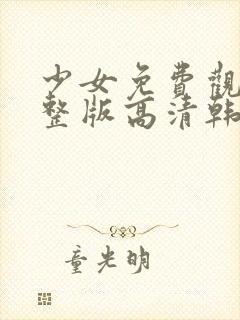 少女免費觀
整版高清韩
童光明